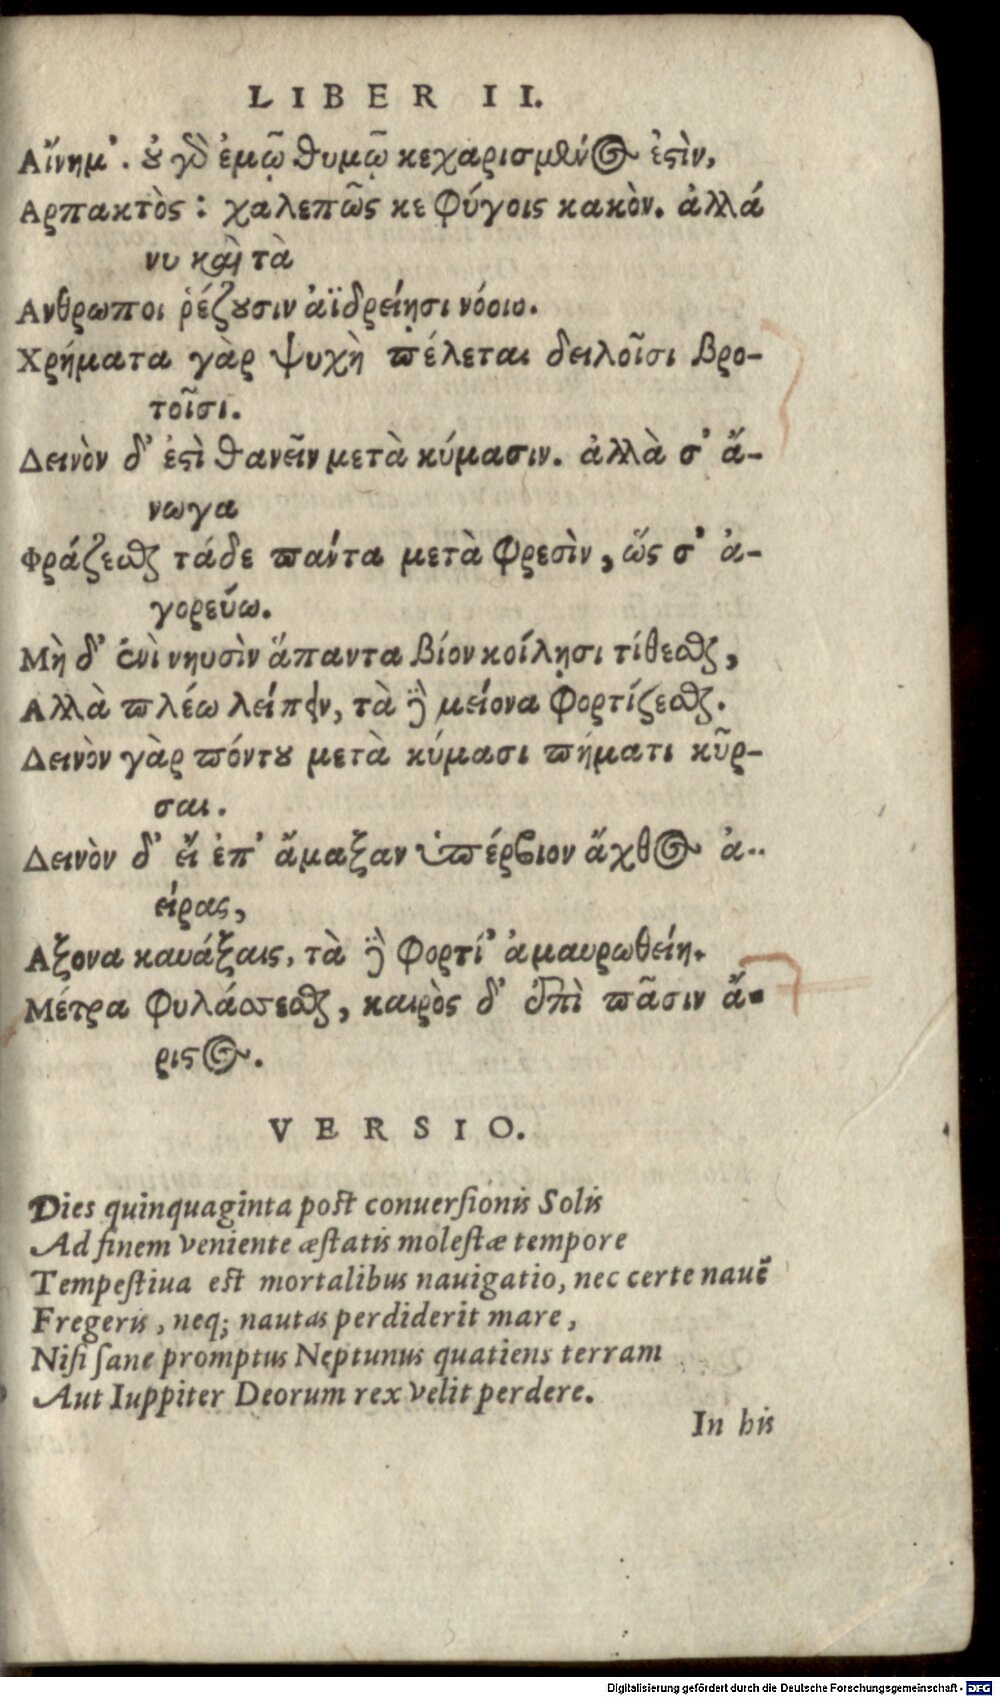 LIBER II.
Αἴνημ'. ȣ γὸ ἐμῷ θυμῷ κεχαρισμένος ἐςὶν,
Αρπακτὸς: χαλεπῶς κε φύγοις κακὸν. ἀλλά
νυ καὶ τὰ
Ανθρωποι ῥέζȣσιν ἀϊδρείῃσι νόοιο.
Χρήματα γὰρ ψυχὴ πέλεται δειλοῖσι βρο-
τοῖσι.
Δεινὸν δ' ἐςὶ θανεῖν μετὰ κύμασιν. ἀλλὰ σ' ἄ-
νωγα
Φράζεσθαι τάδε πάντα μετὰ φρεσὶν, ὥς σ' ἀ-
γορεύω.
Μὴ δ' ἐνὶ νηυσὶν ἅπαντα βίον κοίλῃσι τίθεσθαι,
Αλλὰ πλέω λείπειν, τὰ δὲ μείονα φορτίζεσθαι.
Δεινὸν γὰρ πόντȣ μετὰ κύμασι πήματι κῦρ-
σαι.
Δεινὸν δ' εἴ ἐπ' ἄμαξαν ὑπέρβιον ἄχθος ἀ-
είρας,
Αξονα καυάξαις, τὰ δὲ φορτί' ἀμαυρωθείη.
Μέτρα φυλάσσεσθαι, καιρὸς δ' ἐπὶ πᾶσιν ἄ-
ριςος.
VERSIO.
Dies quinquaginta post conuersionis Solis
Ad finem veniente æstatis molestæ tempore
Tempestiua est mortalibus nauigatio, nec certe nauẽ
Fregeris, neq; nautas perdiderit mare,
Nisi sane promptus Neptunus quatiens terram
Aut Iuppiter Deorum rex velit perdere.
In his
Digitalisierung gefördert durch die Deutsche Forschungsgemeinschaft - DFG